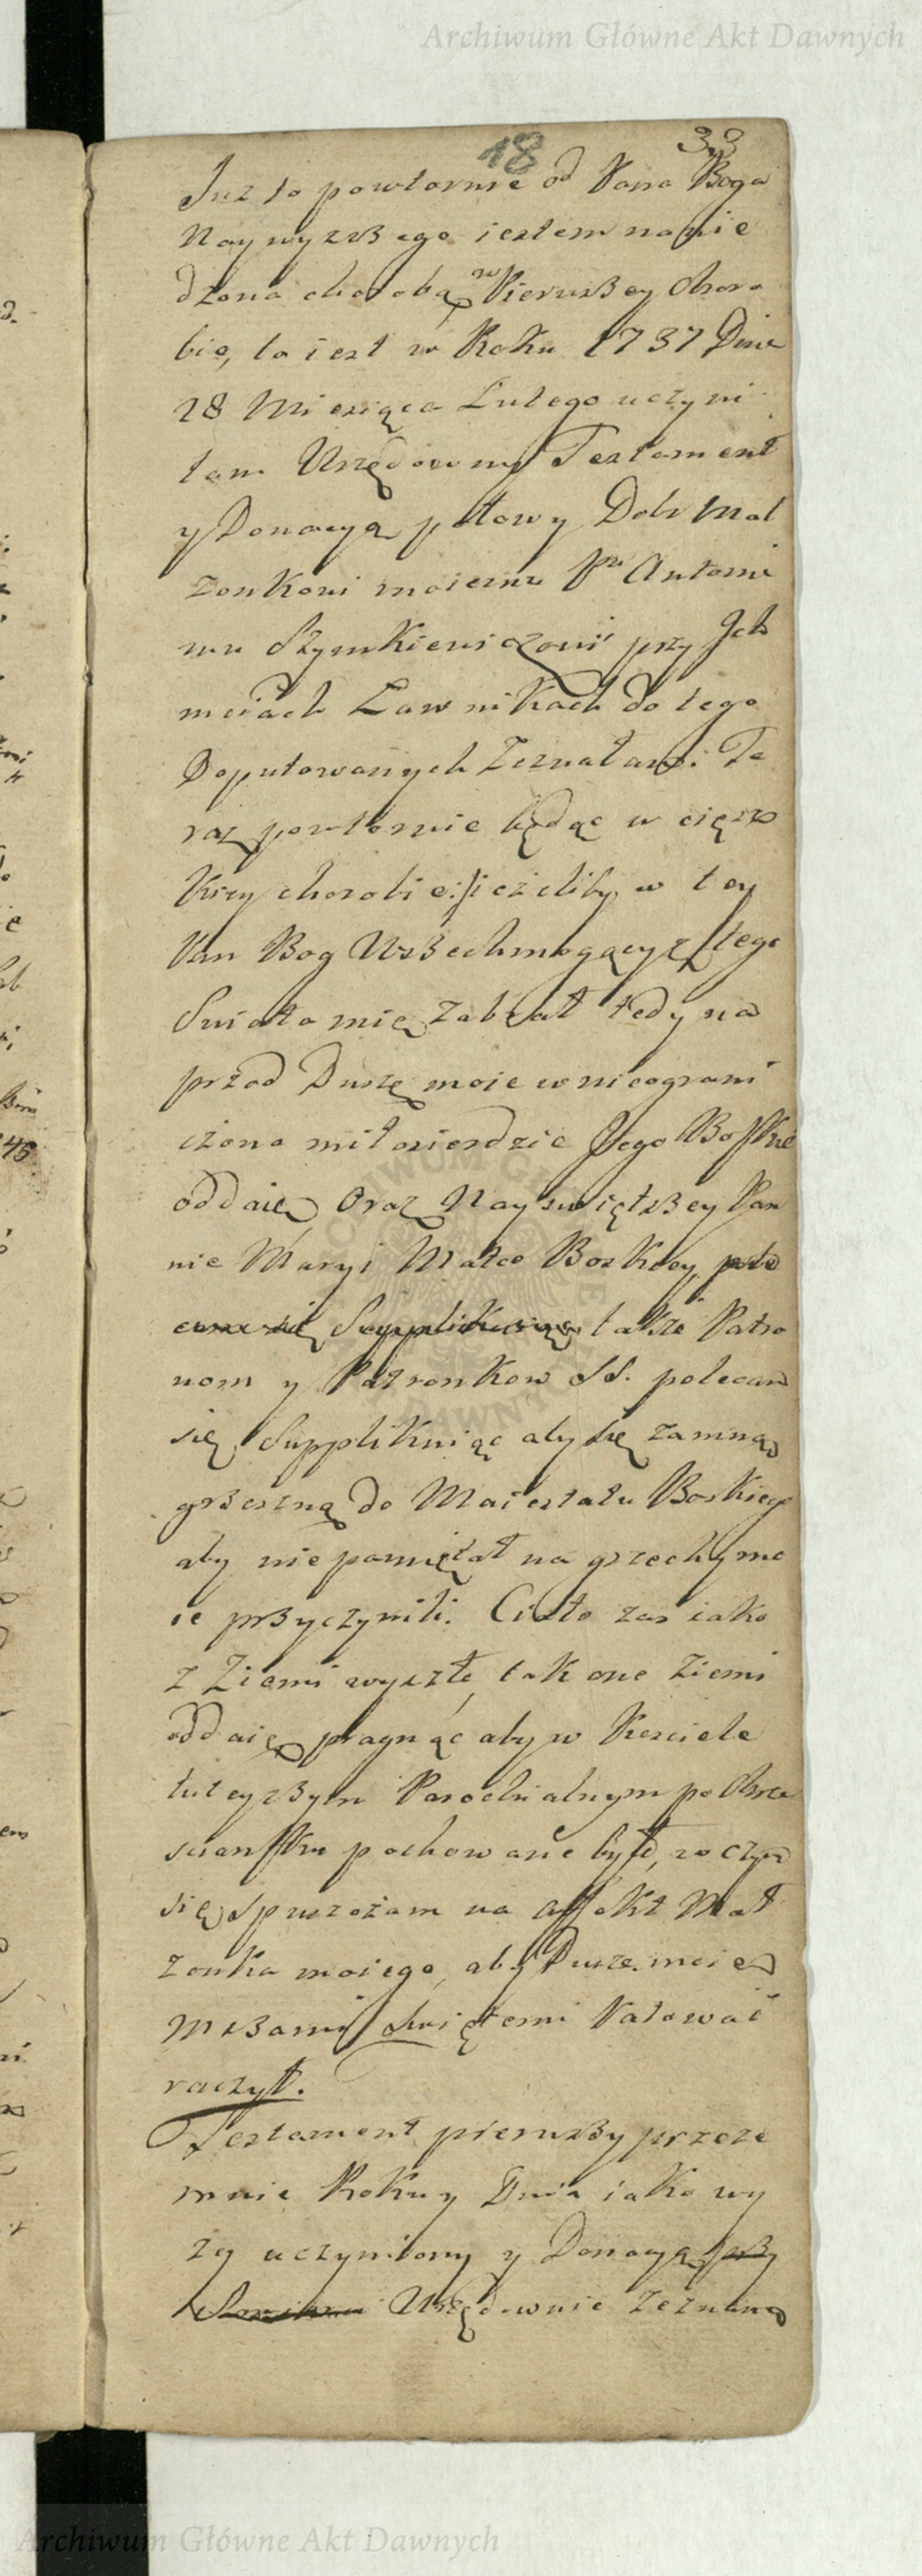 Archiwum Główne Akt Dawnych
18 33
Juz to powtornie od Pana Boga
Naywyzszego iestem nawie
dzona chorobą w Pierwszey Choro
bie, to iest w Roku 1737 Dnia
28 Miesiąca Lutego uczyni
łam Urzędowny Testament
y Donacyą połowy Dobr Mał
zonkowi moiemu Pu Antonie
mu Szymkiewiczowi przy Ich
mciach Ławnikach do tego
Deputowanych Zeznałam: Te
raz powtornie będąc w cięzs
kiey chorobie: jeżeliby w tey
Pan Bog Wszechmogący z tego
Swiata mię Zabrał tedy na
przod Duszę moie w nieograni
czone miłosierdzie Jego Boskie
oddaię Oraz Nayswiętszey Pan
nie Maryi Matce Boskiey, pole
cam się Supplikuiąc także Patro
nom y Patronkow SS. polecam
się Supplikuiąc aby się zamną
grzeszną do Maiestatu Boskiego
aby niepamiętał na grzechy mo
ie przyczynili. Ciało zas iako
z Ziemi wyszłe, tak one Ziemi
oddaię pragnąc aby w Kosciele
tuteyszym Parochialnym po Chrze
scianſku pochowane było, w czym
się spuszczam na affekt Mał
zonka moiego, aby Dusze moię
Mszami Swiętemi Ratować
raczył.
Testament pierwszy przeze
mnie Roku y Dnia iako wy
zey uczyniony y Donacyą przy
Urzędownie Zeznaną
Archiwum Główne Akt Dawnych